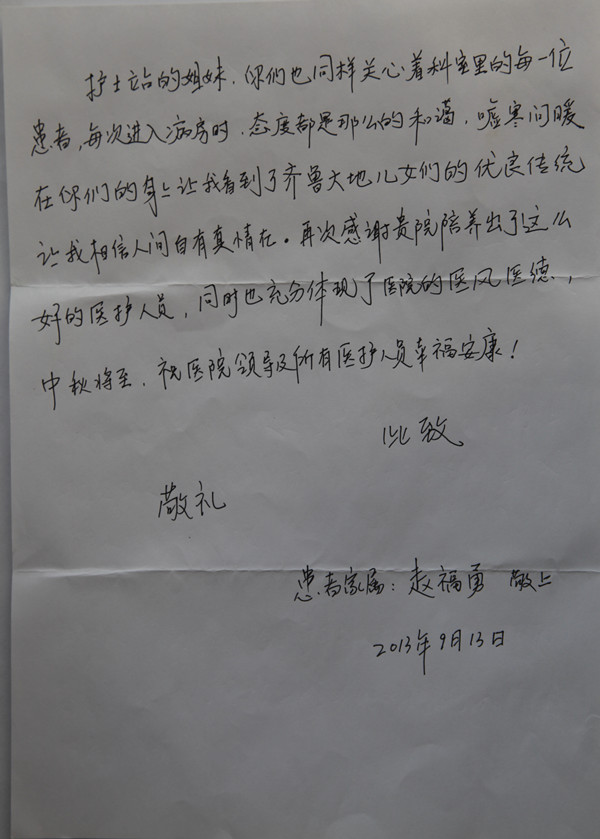 护士站的姐妹、你们也同样关心着科室里的每一位
患者，每次进入病房时、态度都是那么的和蔼，嘘寒问暖
在你们的身上让我看到了齐鲁大地儿女们的优良传统
让我相信人间自有真情在。再次感谢贵院陪养出了这么
好的医护人员，同时也充分体现了医院的医风医德，
中秋将至、祝医院领导及所有医护人员幸福安康！
此致
敬礼
患者家属：赵福勇 敬上
2013年9月13日